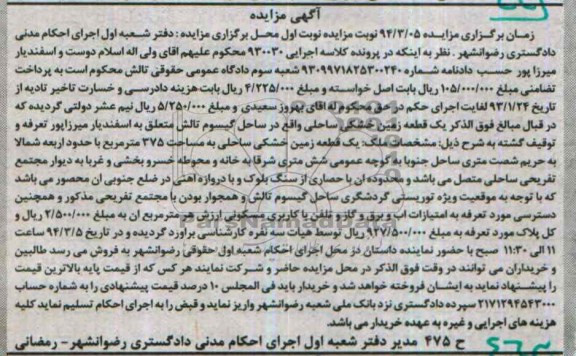 آگهی مزایده
زمان برگزاری مزایده ۹۴/۳/۰۵ نوبت مزایده نوبت اول محل برگزاری مزایده : دفتر شعبه اول اجرای احکام مدنی
دادگستری رضوانشهر . نظر به اینکه در پرونده کلاسه اجرایی ۹۳۰۰۳۰ محکوم علیهم اقای ولی اله اسلام دوست و اسفندیار
میرزا پور حسب دادنامه شماره ۹۳۰۹۹۷۱۸۲۵۳۰۰۲۴۰ شعبه سوم دادگاه عمومی حقوقی تالش محکوم است به پرداخت
تضامنی مبلغ ۱۰۵/۰۰۰/۰۰۰ ریال بابت اصل خواسته و مبلغ ۴/۲۲۵/۰۰۰ ریال بابت هزینه دادرسی و خسارت تاخیر تادیه از
تاریخ ۹۳/۱/۲۴ لغایت اجرای حکم در حق محکوم له اقای بهروز سعیدی و مبلغ ۵/۲۵۰/۰۰۰ ریال نیم عشر دولتی گردیده که
در قبال مبالغ فوق الذکر یک قطعه زمین خشکی ساحلی واقع در ساحل گیسوم تالش متعلق به اسفندیار میرزاپور تعرفه و
توقیف گشته به شرح ذیل: مشخصات ملک: یک قطعه زمین خشکی ساحلی به مساحت ۳۷۵ مترمربع با حدود اربعه شمالا
به حریم شصت متری ساحل جنوبا به کوچه عمومی شش متری شرقا به خانه و محوطه خسرو بخشی و غربا به دیوار مجتمع
تفریحی ساحلی متصل می باشد و محدوده ان با حصاری از سنگ بلوک و با دروازه اهنی در ضلع جنوبی ان محصور می باشد
که با توجه به موقعیت ویژه توریستی گردشگری ساحل گیسوم تالش و همجوار بودن با مجتمع تفریحی مذکور و همچنین
دسترسی مورد تعرفه به امتیازات اب و برق و گاز و تلفن با کاربری مسکونی ارزش هر مترمربع ان به مبلغ ۲/۵۰۰/۰۰۰ ریال و
کل پلاک مورد تعرفه به مبلغ ۹۳۷/۵۰۰/۰۰۰ ریال توسط هیات سه نفره کارشناسی براورد گردیده و در تاریخ ۹۴/۳/۵ ساعت
۱۱ الی ۱۱:۳۰ صبح با حضور نماینده داستان در محل اجرای احکام شعبه اول حقوقی رضوانشهر به فروش می رسد طالبین
و خریداران می توانند در وقت فوق الذکر در محل مزایده حاضر و شرکت نمایند هر کس که از قیمت پایه بالاترین قیمت
را پیشنهاد نماید به ایشان فروخته خواهد شد و خریدار باید فی المجلس ۱۰ درصد قیمت پیشنهادی را به شماره حساب
۲۱۷۱۲۹۴۵۴۳۰۰۰ سپرده دادگستری نزد بانک ملی شعبه رضوانشهر واریز نماید و قبض را به اجرای احکام تسلیم نماید کلیه
هزینه های اجرایی و غیره به عهده خریدار می باشد.
ح ۴۷۵ مدیر دفتر شعبه اول اجرای احکام مدنی دادگستری رضوانشهر- رمضانی